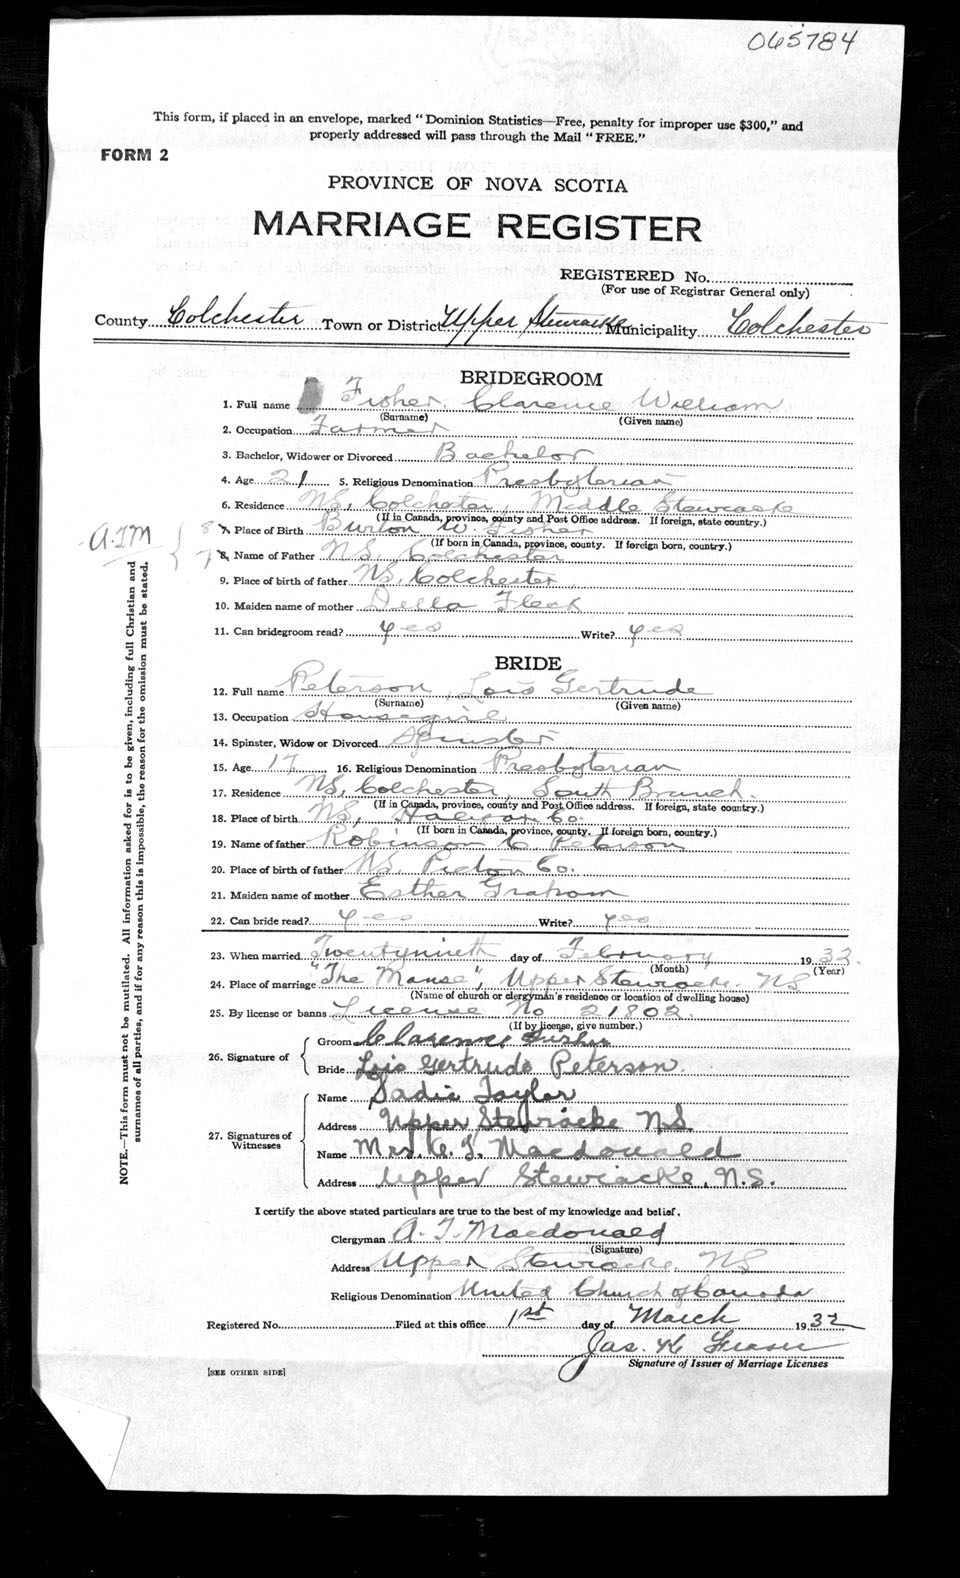 065784
This form, if placed in an envelope, marked "Dominion Statistics—Free, penalty for improper use $300," and
properly addressed will pass through the Mail "FREE."
FORM 2
PROVINCE OF NOVA SCOTIA
MARRIAGE REGISTER
REGISTERED No.
(For use of Registrar General only)
County Colchester Town or District Upper Stewiacke Municipality Colchester
BRIDEGROOM
1. Full name Fisher, Clarence William
(Surname) (Given name)
2. Occupation Farmer
3. Bachelor, Widower or Divorced Bachelor
4. Age 21 5. Religious Denomination Presbyterian
6. Residence NS, Colchester, Middle Stewiacke
(If in Canada, province, county and Post Office address. If foreign, state country.)
8 7. Place of Birth Burton W. Fisher
(If born in Canada, province, county. If foreign born, country.)
A.T.M
7 8. Name of Father NS, Colchester
9. Place of birth of father NS, Colchester
10. Maiden name of mother Della Fleck
11. Can bridegroom read? yes Write? yes
BRIDE
12. Full name Peterson, Lois Gertrude
(Surname) (Given name)
13. Occupation Housegirl
14. Spinster, Widow or Divorced Spinster
15. Age 17 16. Religious Denomination Presbyterian
17. Residence NS, Colchester, South Branch.
(If in Canada, province, county and Post Office address. If foreign, state country.)
18. Place of birth NS, Halifax Co.
(If born in Canada, province, county. If foreign born, country.)
19. Name of father Robinson C. Peterson
20. Place of birth of father NS, Pictou Co.
21. Maiden name of mother Esther Graham
22. Can bride read? yes Write? yes
23. When married Twentynineth day of February 1932
(Month) (Year)
24. Place of marriage "The Manse", Upper Stewiacke. NS
(Name of church or clergyman's residence or location of dwelling house)
25. By license or banns License No 21802.
(If by license, give number.)
26. Signature of
Groom Clarence Fisher
Bride Lois Gertrude Peterson.
27. Signatures of Witnesses
Name Sadie Taylor
Address Upper Stewiacke NS
Name Mrs. A. T. Macdonald
Address Upper Stewiacke, N.S.
I certify the above stated particulars are true to the best of my knowledge and belief.
Clergyman A. T. Macdonald
(Signature)
Address Upper Stewiacke. NS
Religious Denomination United Church of Canada
Registered No. Filed at this office 1st day of March 1932
Jas. K Fraser
Signature of Issuer of Marriage Licenses
[SEE OTHER SIDE]
NOTE.—This form must not be mutilated. All information asked for is to be given, including full Christian and
surnames of all parties, and if for any reason this is impossible, the reason for the omission must be stated.